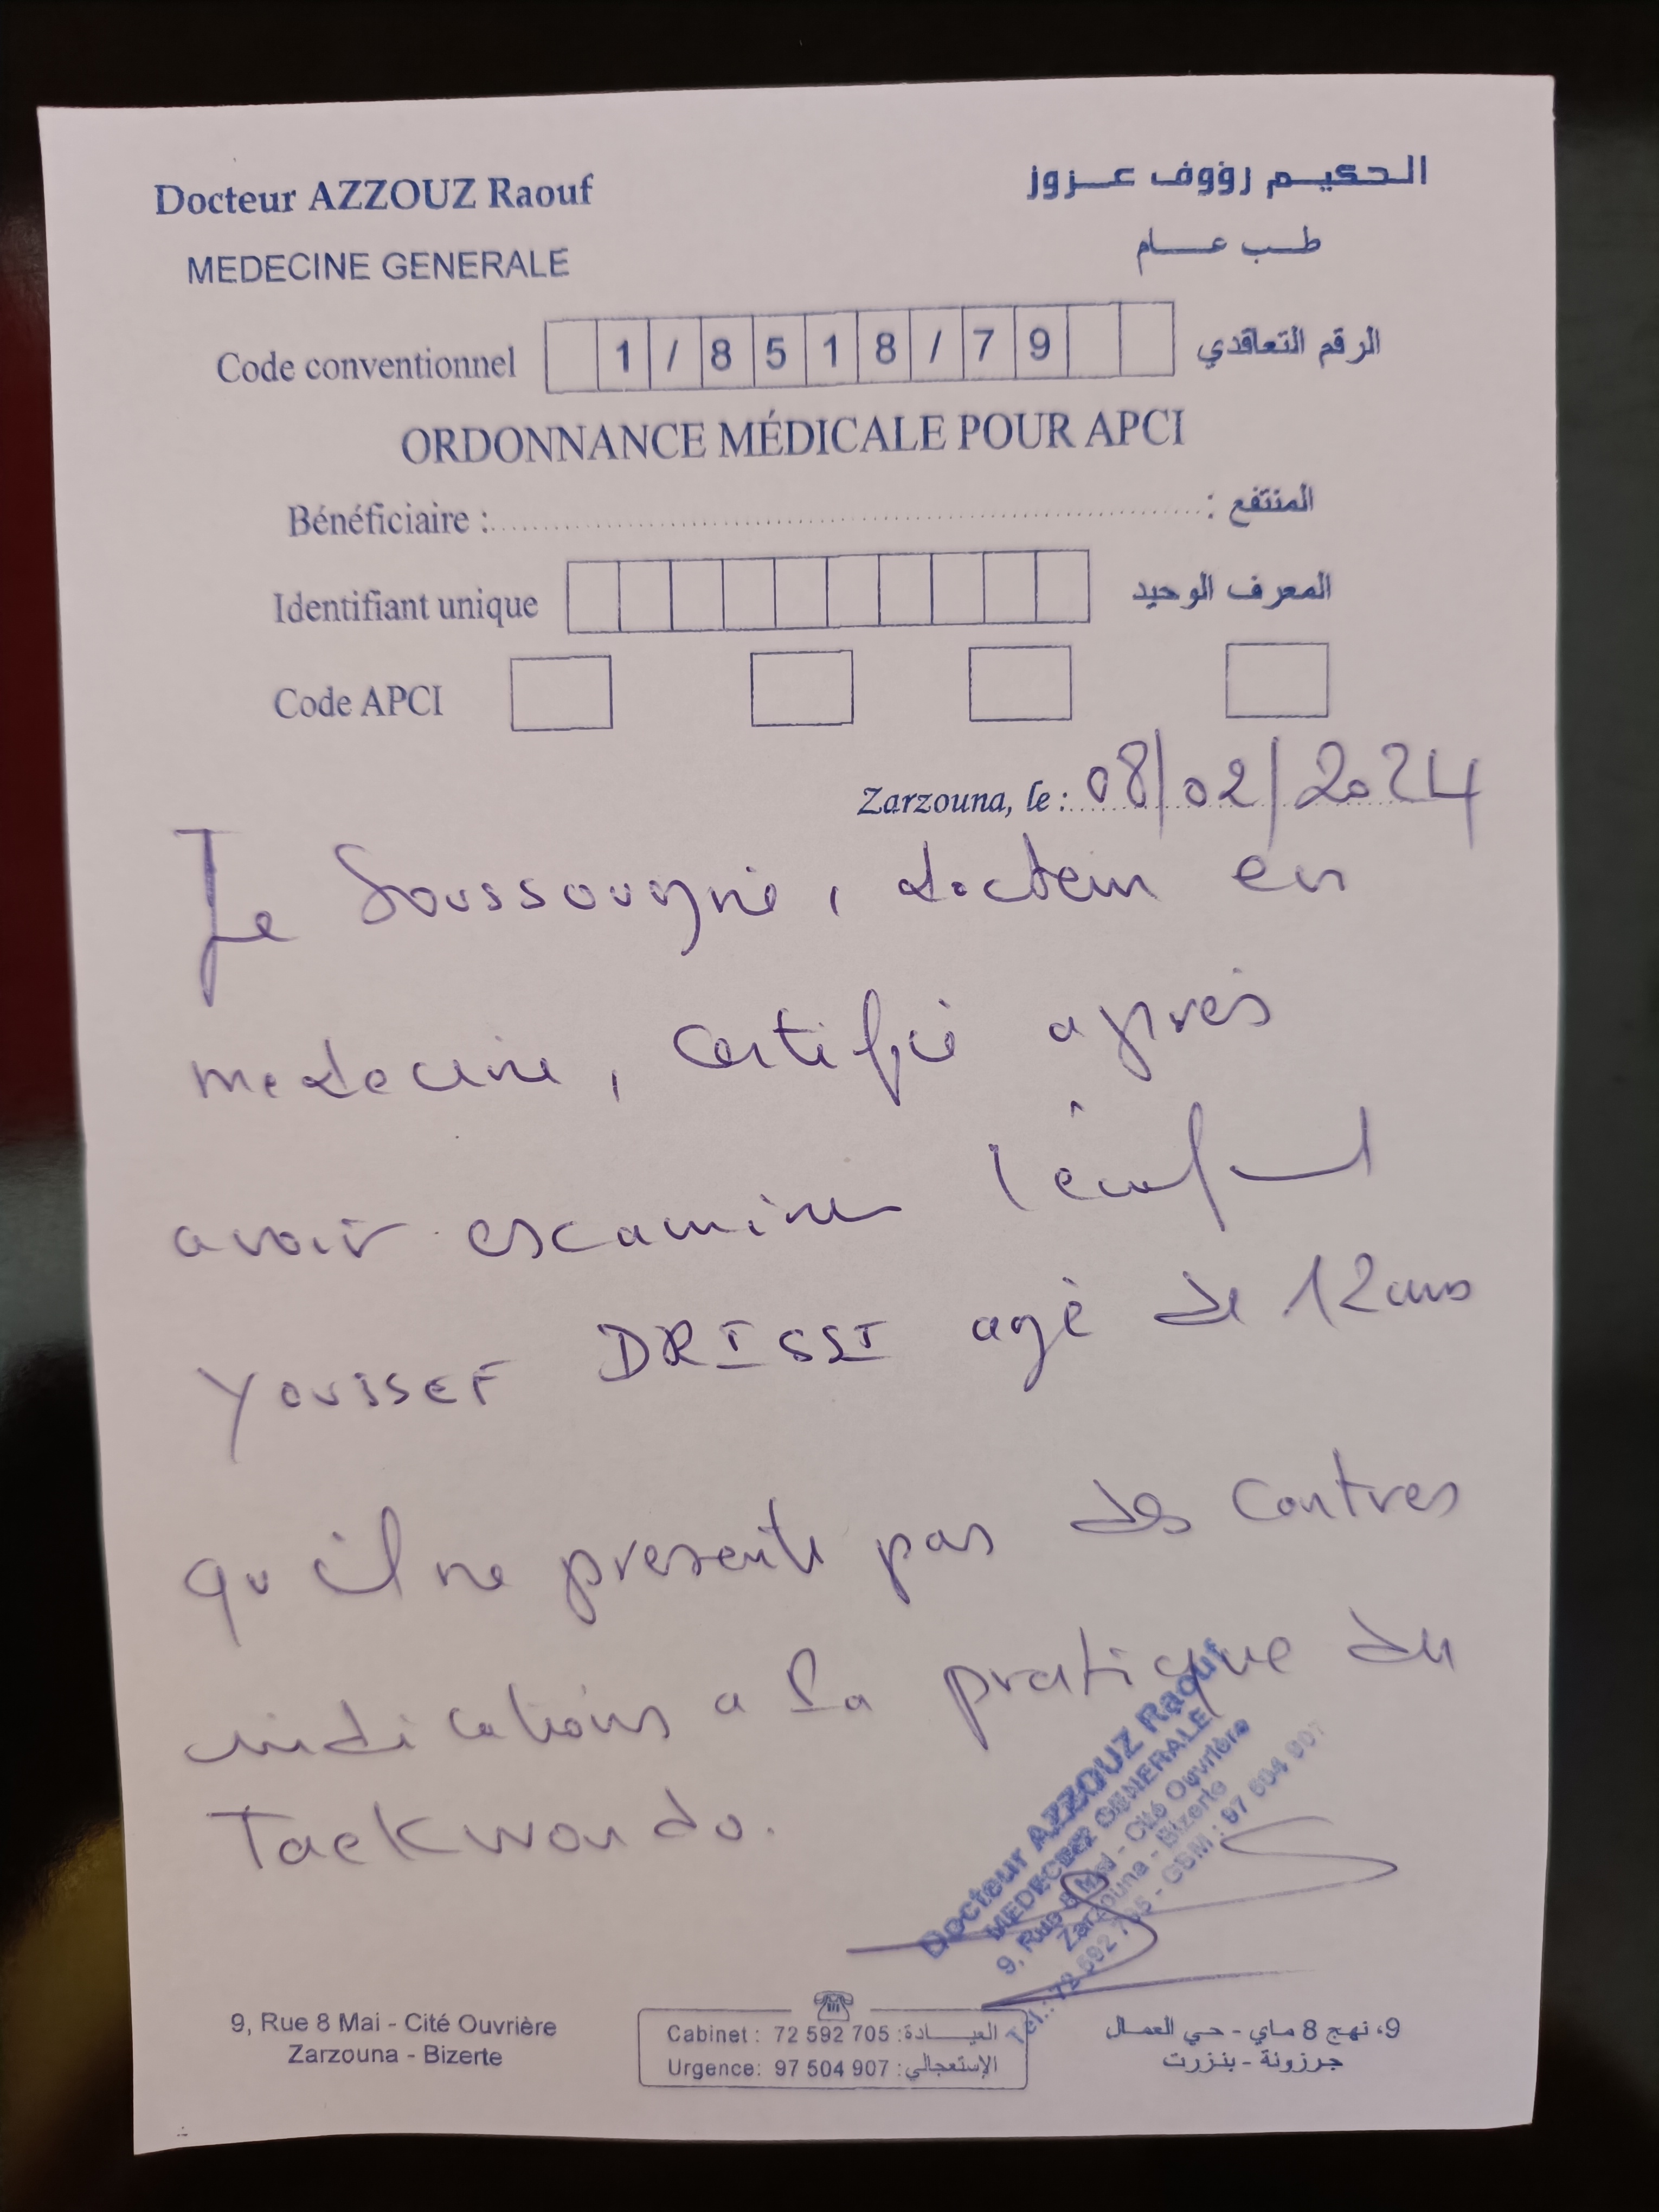 Docteur AZZOUZ Raouf
الحكيم رؤوف عزوز
MEDECINE GENERALE
طب عام
Code conventionnel 1/8518/79 الرقم التعاقدي
ORDONNANCE MÉDICALE POUR APCI
Bénéficiaire : المنتفع :
Identifiant unique المعرف الوحيد
Code APCI
Zarzouna, le : 08/02/2024
Je Soussougné, docteur en
medecine, certifie après
avoir examiner l'enfant
YOUSSEF DRISSI agé de 12 ans
qu il ne presente pas des contres
indications a la pratique du
Taekwondo.
Docteur AZZOUZ Raouf
MEDECINE GENERALE
9, Rue 8 Mai - Cité Ouvrière
Zarzouna - Bizerte
Tél.: 72 592 705 - GSM : 97 504 907
9, Rue 8 Mai - Cité Ouvrière
Zarzouna - Bizerte
Cabinet : 72 592 705 :العيادة
Urgence: 97 504 907 :الإستعجالي
9، نهج 8 ماي - حي العمال
جرزونة - بنزرت